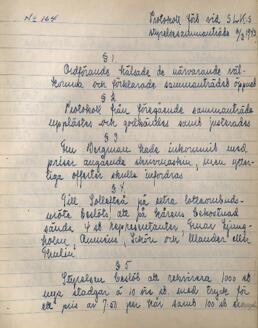 No 164
Protokoll fört vid S.L.K.S
styrelsesammanträde 1943
§ 1
Ordförande hälsade de närvarande väl-
komna och förklarade sammanträdet öppnat
§ 2
Protokoll från föregående sammanträde
upplästes och godkändes samt justerades
§ 3
Bergman hade inkommit med
priser angående skrivmaskin, men ytter-
liga offerter skulle infordras
§ 4
Till Sollefteå på extra lotteombuds-
möte beslöts, att på kårens bekostnad
sända 4 st representanter,
eller
§ 5
Styrelsen beslöt att rekvirera 1000 st
nya stadgar á 10 öre st. med tryck för
ett pris av 7:50 per kår samt 100 st